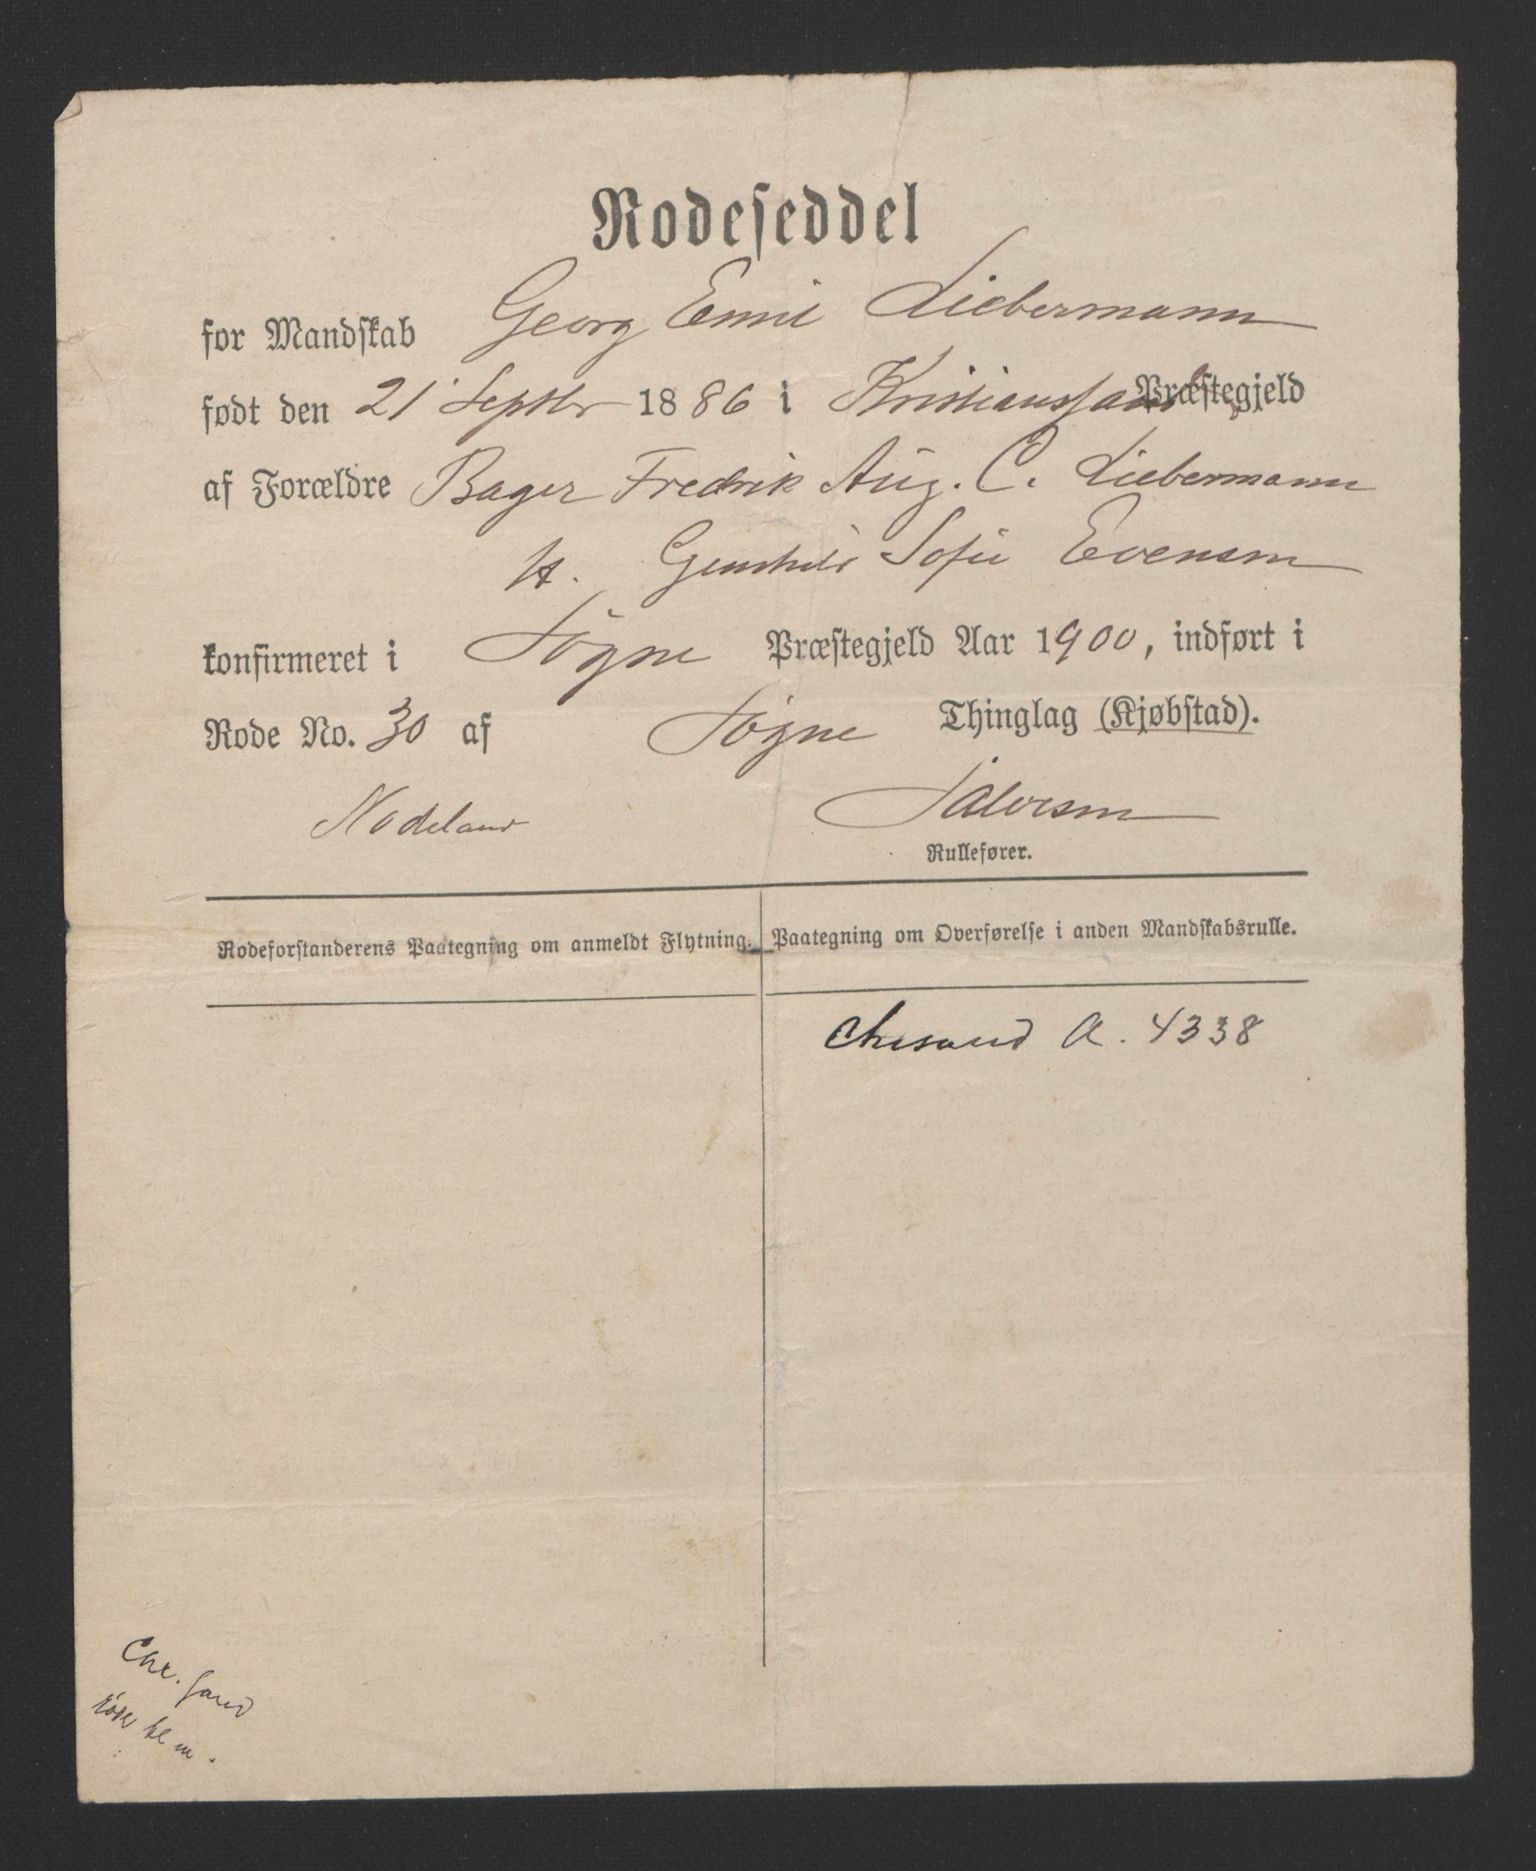 Rodeseddel
for Mandskab Georg Emil Liebermann
født den 21 Septbr 1886 i Kristianssand Præstegjeld
af Forældre Bager Fredrik Aug. C. Liebermann
H. Gunhild Sofie Evensen
konfirmeret i Søgne Præstegjeld Aar 1900, indført i
Rode No. 30 af Søgne Thinglag (Kjøbstad).
Nodeland Salvesen
Rullefører.
Rodeforstanderens Paategning om anmeldt Flytning. Paategning om Overførelse i anden Mandskabsrulle.
Chrsand A. 4338
Chr. sand